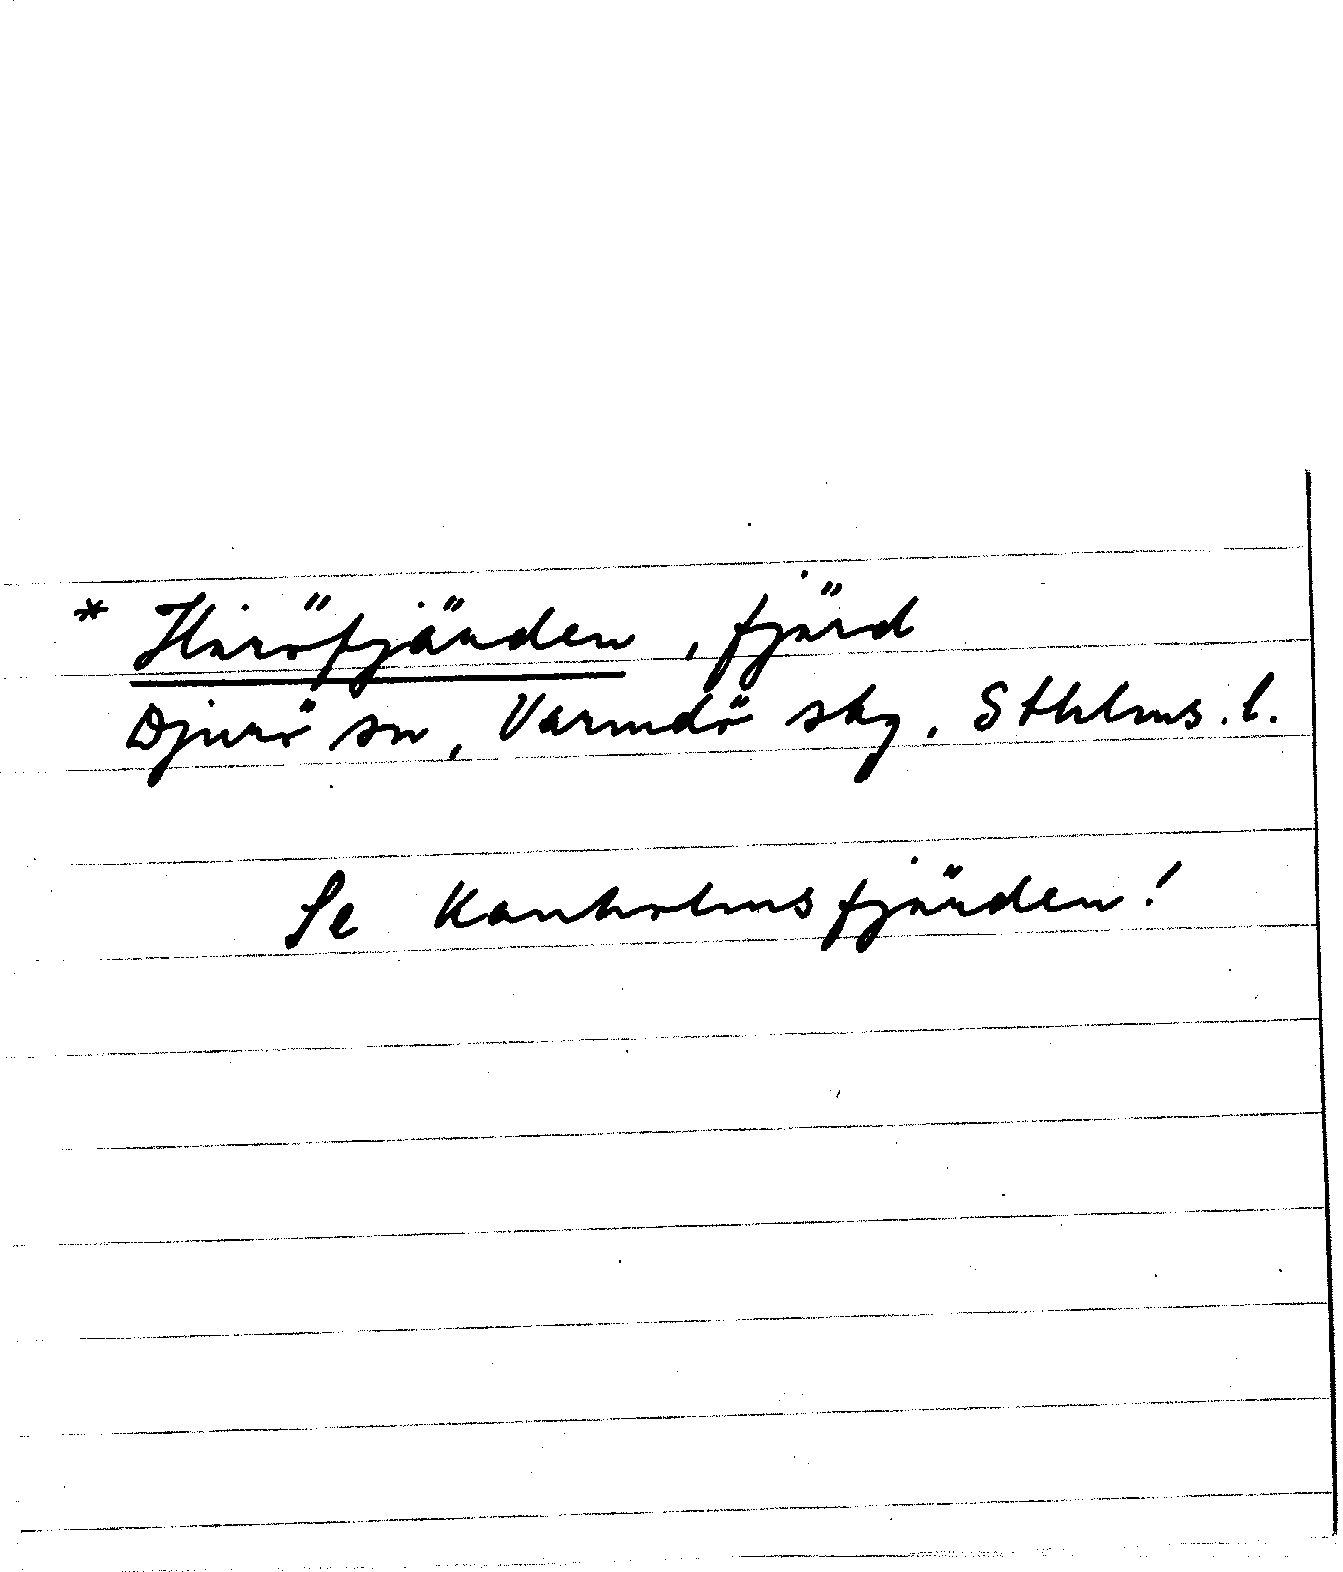 * Hiröfjärden, fjärd
Djurö sn, Varmdö skg. Sthlms.l.
Se Kanholmsfjärden!